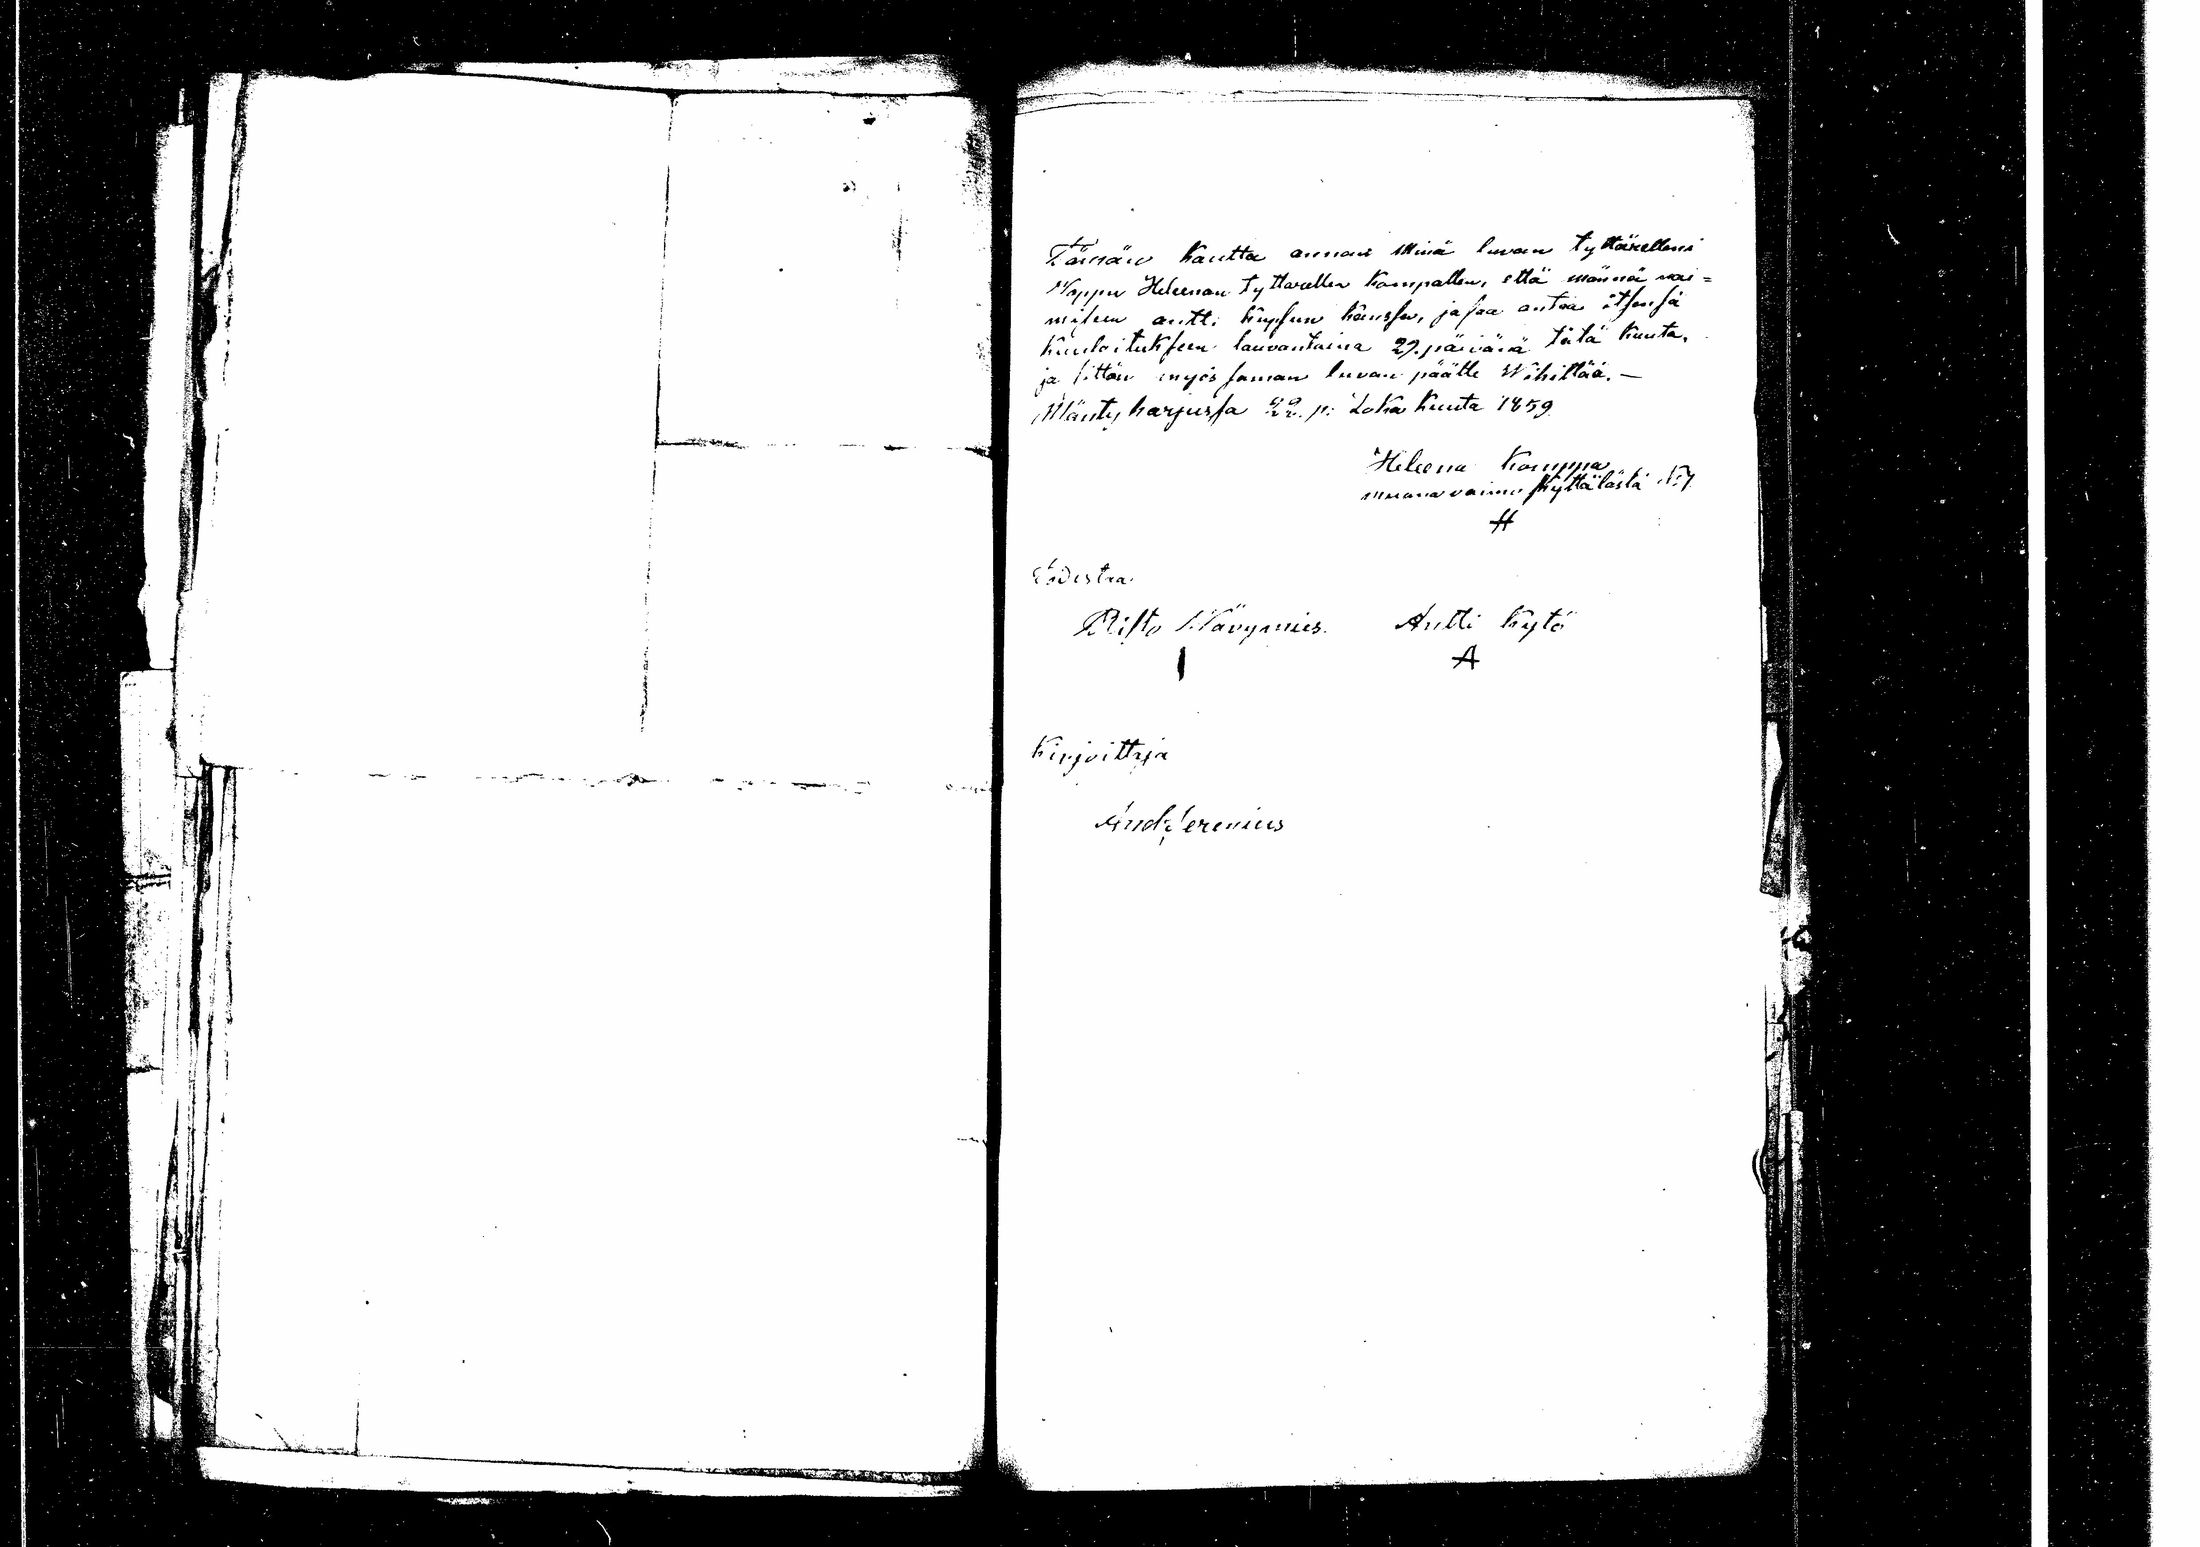 Tämän kautta annan Minä luvan tyttärelleni
Woppu Heleenan tyttarellen kompallen, että männä nai=
miseen antti kupsun kanssa, ja saa antaa itsensä
kuuloitukseen lauvantaina 29. päivänä tätä kuuta,
ja sittän myös saman luvan päälle Wihittää. —
Mäntyharjussa 22. p: Loka kuuta 1859
Heleena Komppa
muana vaimo Kyttälästä No 7
H
Todistaa
Risto Näkymies. Antti Kytö
I A
Kirjoittaja
And. Jerenius